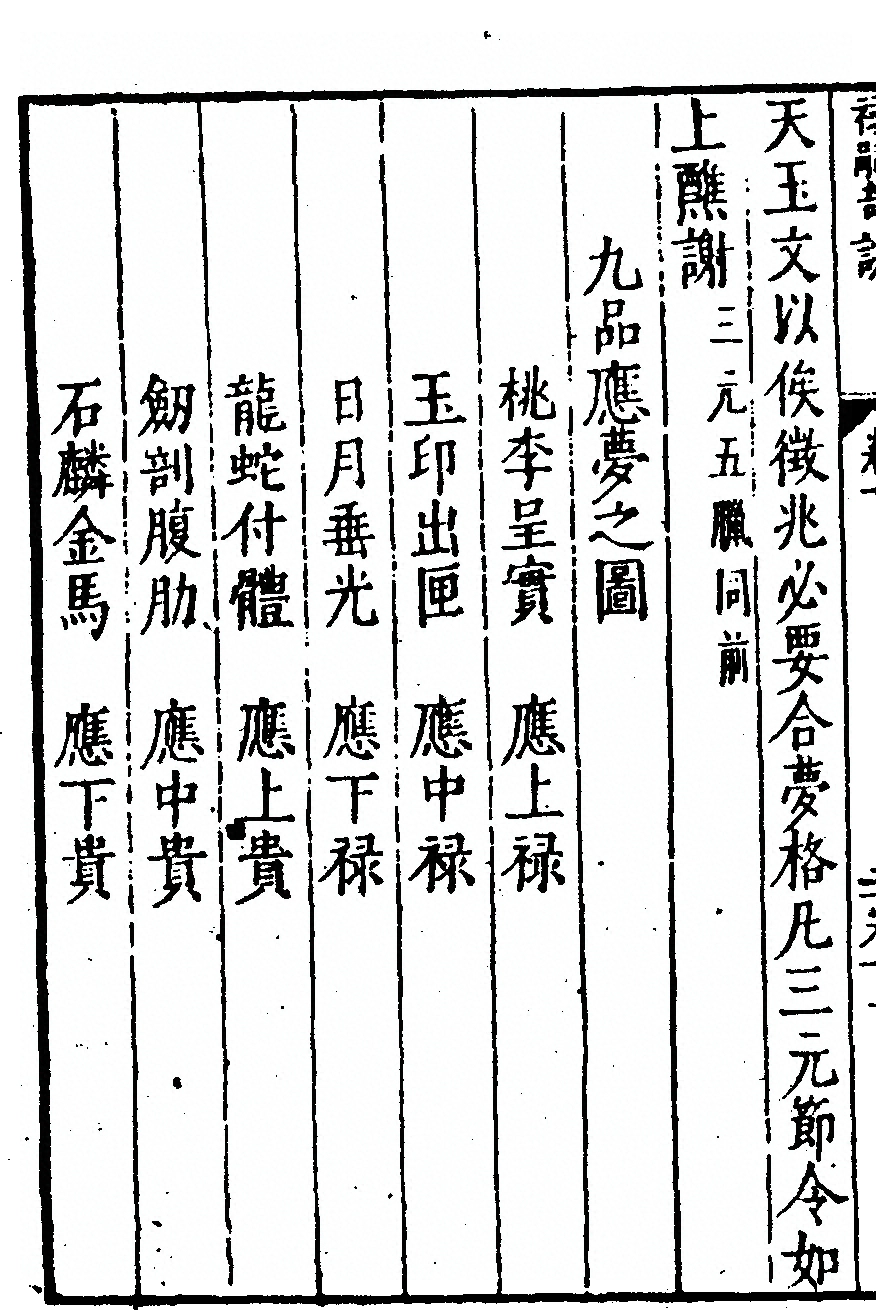 天玉文以俟徵兆必要合夢格凡三元節令如
上醮謝三元五臘同前
九品應夢之圖
桃李呈實　應上祿
玉印出匣　應中祿
日月垂光　應下祿
龍蛇付體　應上貴
劔剖腹肋　應中貴
石麟金馬　應下貴